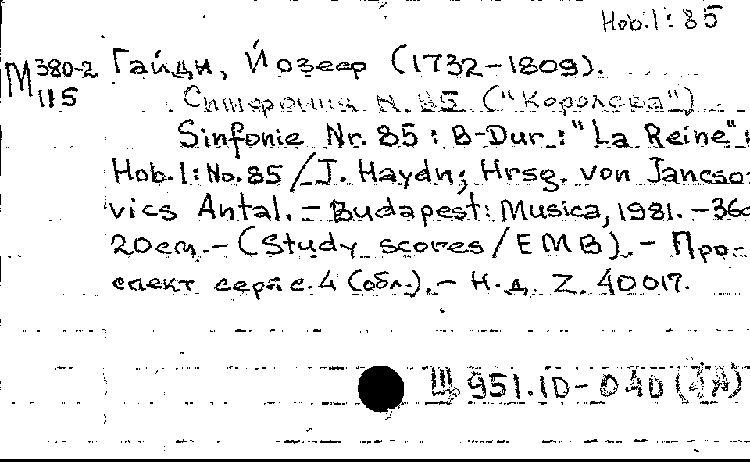 Hob.I: 85
M 380-2 Гайдн, Йозеф (1732-1809).
115 Симфония N. 85 ("Королева")
Sinfonie Nr. 85 : B-Dur : "La Reine" :
Hob.I: No. 85 / J. Haydn; Hrsg. von Jancso-
vics Antal. - Budapest: Musica, 1981. - 36c
20cm. - (Study scores / EMB). - Про-
спект серии с. 4 (обл.). - Н.д. Z. 40017.
Щ 951.10-040 (4А)